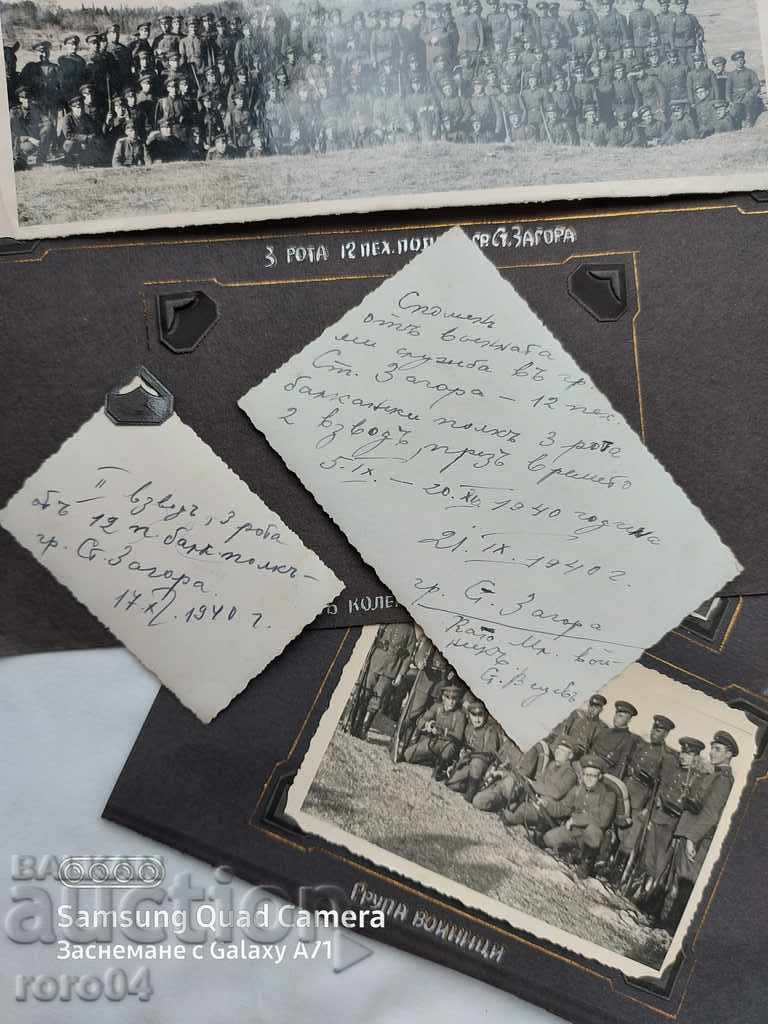 3 РОТА 12 ПЕХ. ПОЛ СВ. СТ. ЗАГОРА
Споменъ
отъ военната
ми служба въ гр.
Ст. Загора – 12 пех.
балкански полкъ 3 рота
2 взводъ, презъ времето
5.IX. – 20.XII.1940 година
21.IX.1940 г.
гр. Ст. Загора
Като Мл. вой-
никъ.
II взводъ, 3 рота
отъ 12 п. балк. полкъ –
гр. Ст. Загора.
17.XI.1940 г.
Ъ КОЛЕ
ГРУПА ВОЙНИЦИ
БАЛКАН
auction
Samsung Quad Camera
Заснемане с Galaxy A71
roro04